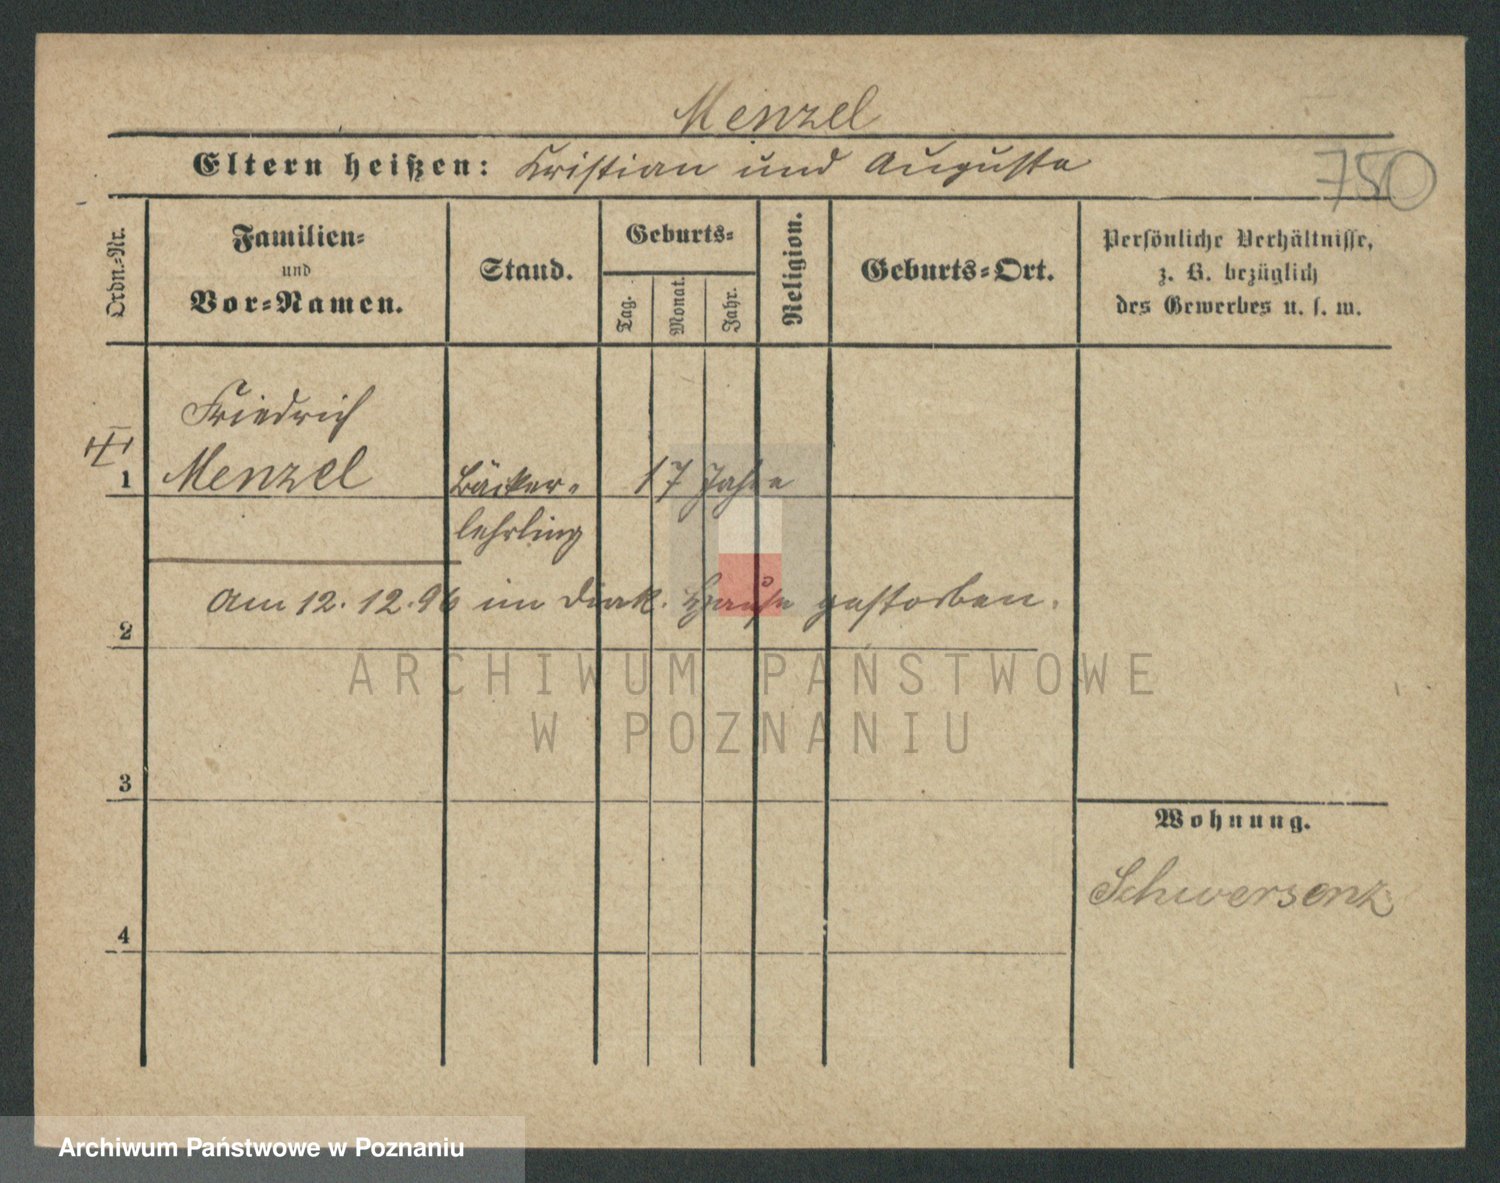 Menzel
Eltern heißen: Kristian und Augusta
750
Ordn.-Nr.
Familien-
und
Vor-Namen.
Stand.
Geburts-
Tag.
Monat.
Jahr.
Religion.
Geburts-Ort.
Persönliche Verhältnisse,
z. B. bezüglich
des Gewerbes u. s. w.
Friedrich
1 Menzel Bäcker- 17 Jahre
lehrling
Am 12.12.96 im Diak. Hause gestorben.
2
ARCHIWUM PAŃSTWOWE
W POZNANIU
3
Wohnung.
Schwersenz
4
Archiwum Państwowe w Poznaniu